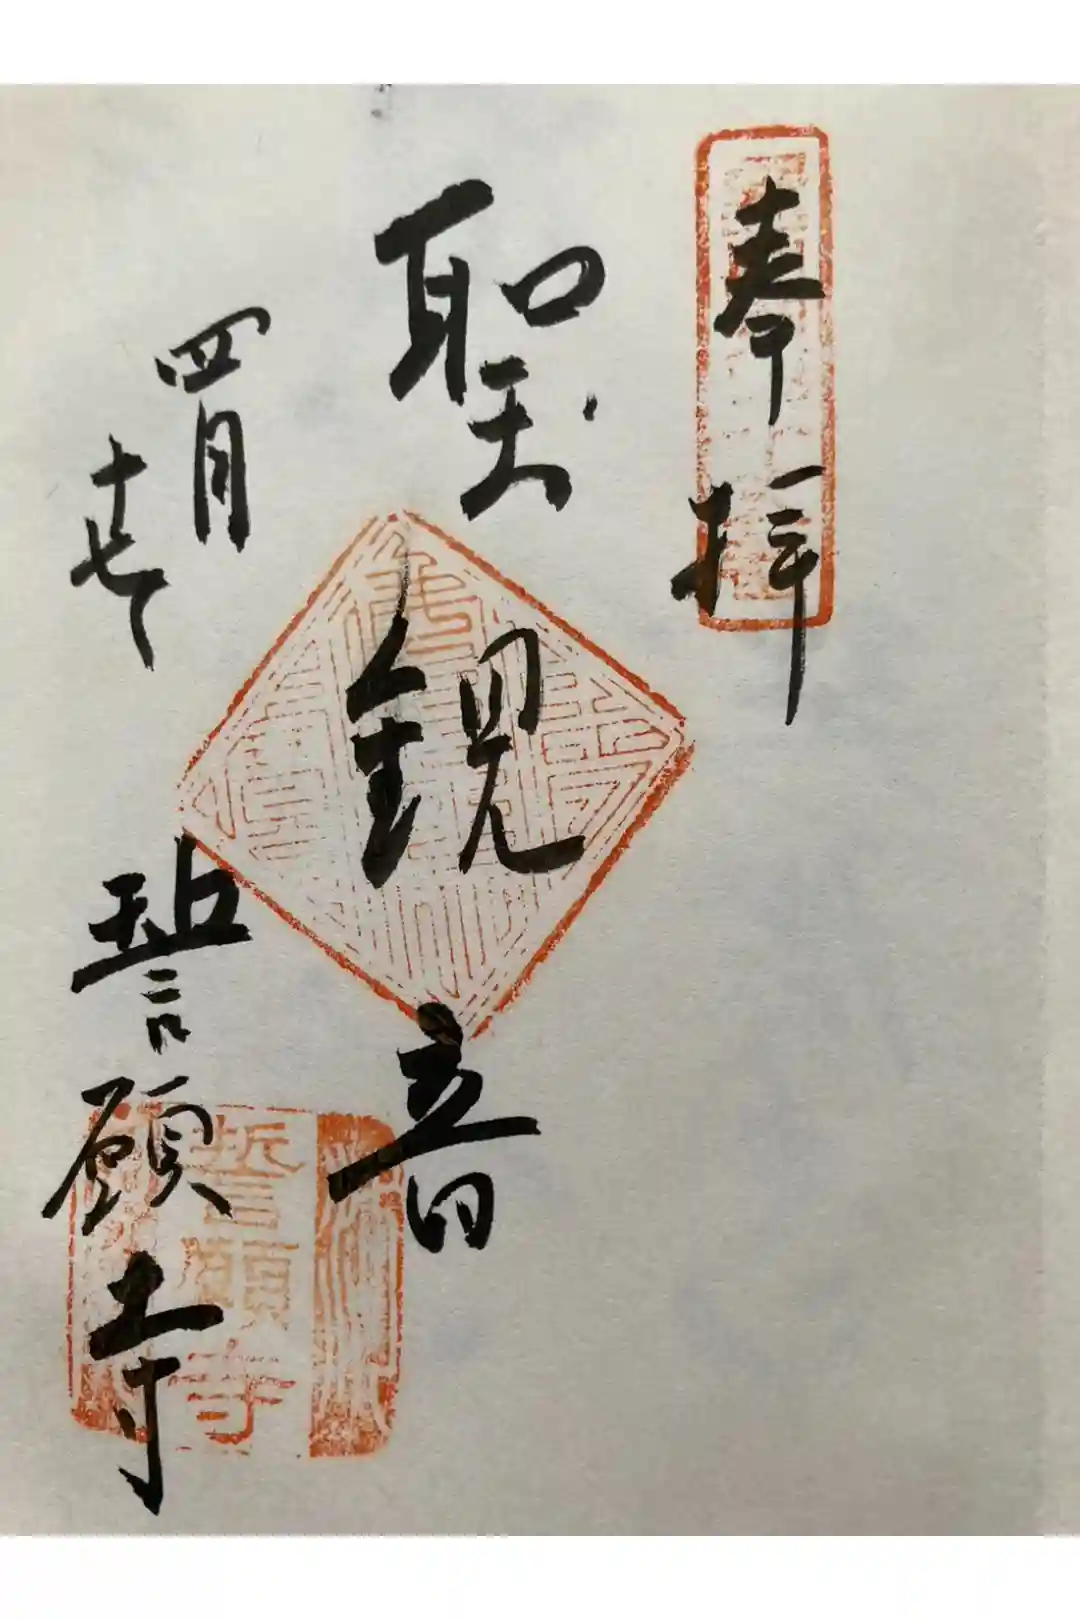 奉拝
聖観音
四月
十七
誓願寺
誓願寺